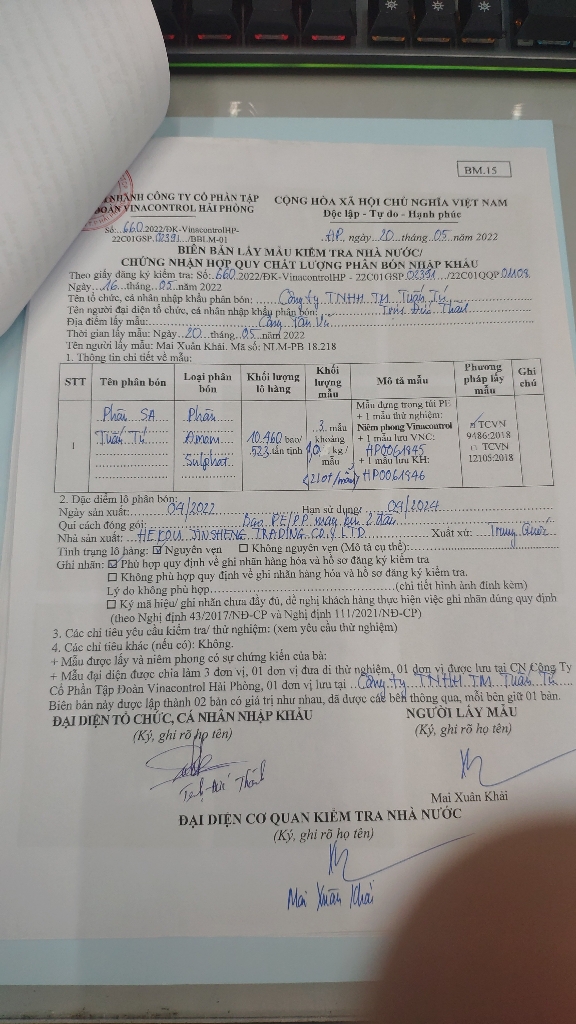 BM.15
NHÁNH CÔNG TY CỔ PHẦN TẬP
ĐOÀN VINACONTROL HẢI PHÒNG
CỘNG HÒA XÃ HỘI CHỦ NGHĨA VIỆT NAM
Độc lập - Tự do - Hạnh phúc
Số: 660.2022/ĐK-VinacontrolHP-
22C01GSP.02391/BBLM-01
HP, ngày 20 tháng 05 năm 2022
BIÊN BẢN LẤY MẪU KIỂM TRA NHÀ NƯỚC/
CHỨNG NHẬN HỢP QUY CHẤT LƯỢNG PHÂN BÓN NHẬP KHẨU
Theo giấy đăng ký kiểm tra: Số: 660.2022/ĐK-VinacontrolHP - 22C01GSP.02391/22C01QQP.01108
Ngày 16 tháng 05 năm 2022
Tên tổ chức, cá nhân nhập khẩu phân bón: Công ty TNHH TM Tuấn Tú
Tên người đại diện tổ chức, cá nhân nhập khẩu phân bón:
Địa điểm lấy mẫu: Cảng Tân Vũ
Thời gian lấy mẫu: Ngày 20 tháng 05 năm 2022
Tên người lấy mẫu: Mai Xuân Khải. Mã số: NLM-PB 18.218
1. Thông tin chi tiết về mẫu:
STT Tên phân bón Loại phân bón Khối lượng lô hàng Khối lượng mẫu Mô tả mẫu Phương pháp lấy mẫu Ghi chú
1
Phân SA
Tuấn Tú
Phân
Amoni
Sulphat
10.460 bao/
523 tấn tịnh
3 mẫu
khoảng
kg /
mẫu
Mẫu đựng trong túi PE
+ 1 mẫu thử nghiệm:
Niêm phong Vinacontrol
+ 1 mẫu lưu VNC:
HP0061845
+ 1 mẫu lưu KH:
HP0061946
☑ TCVN
9486:2018
☐ TCVN
12105:2018
2. Đặc điểm lô phân bón:
Ngày sản xuất: 04/2022 Hạn sử dụng: 04/2024
Qui cách đóng gói: Bao PE/PP may kín 2 đầu
Nhà sản xuất: HEKOU JINSHENG TRADING CO.,LTD. Xuất xứ: Trung Quốc
Tình trạng lô hàng: ☑ Nguyên vẹn ☐ Không nguyên vẹn (Mô tả cụ thể):
Ghi nhãn: ☑ Phù hợp quy định về ghi nhãn hàng hóa và hồ sơ đăng ký kiểm tra
☐ Không phù hợp quy định về ghi nhãn hàng hóa và hồ sơ đăng ký kiểm tra.
Lý do không phù hợp (chi tiết hình ảnh đính kèm)
☐ Ký mã hiệu/ ghi nhãn chưa đầy đủ, đề nghị khách hàng thực hiện việc ghi nhãn đúng quy định
(theo Nghị định 43/2017/NĐ-CP và Nghị định 111/2021/NĐ-CP)
3. Các chỉ tiêu yêu cầu kiểm tra/ thử nghiệm: (xem yêu cầu thử nghiệm)
4. Các chỉ tiêu khác (nếu có): Không.
+ Mẫu được lấy và niêm phong có sự chứng kiến của bà:
+ Mẫu đại diện được chia làm 3 đơn vị, 01 đơn vị đưa đi thử nghiệm, 01 đơn vị được lưu tại CN Công Ty
Cổ Phần Tập Đoàn Vinacontrol Hải Phòng, 01 đơn vị lưu tại Công ty TNHH TM Tuấn Tú
Biên bản này được lập thành 02 bản có giá trị như nhau, đã được các bên thông qua, mỗi bên giữ 01 bản.
ĐẠI DIỆN TỔ CHỨC, CÁ NHÂN NHẬP KHẨU
NGƯỜI LẤY MẪU
(Ký, ghi rõ họ tên)
(Ký, ghi rõ họ tên)
Mai Xuân Khải
ĐẠI DIỆN CƠ QUAN KIỂM TRA NHÀ NƯỚC
(Ký, ghi rõ họ tên)
Mai Xuân Khải